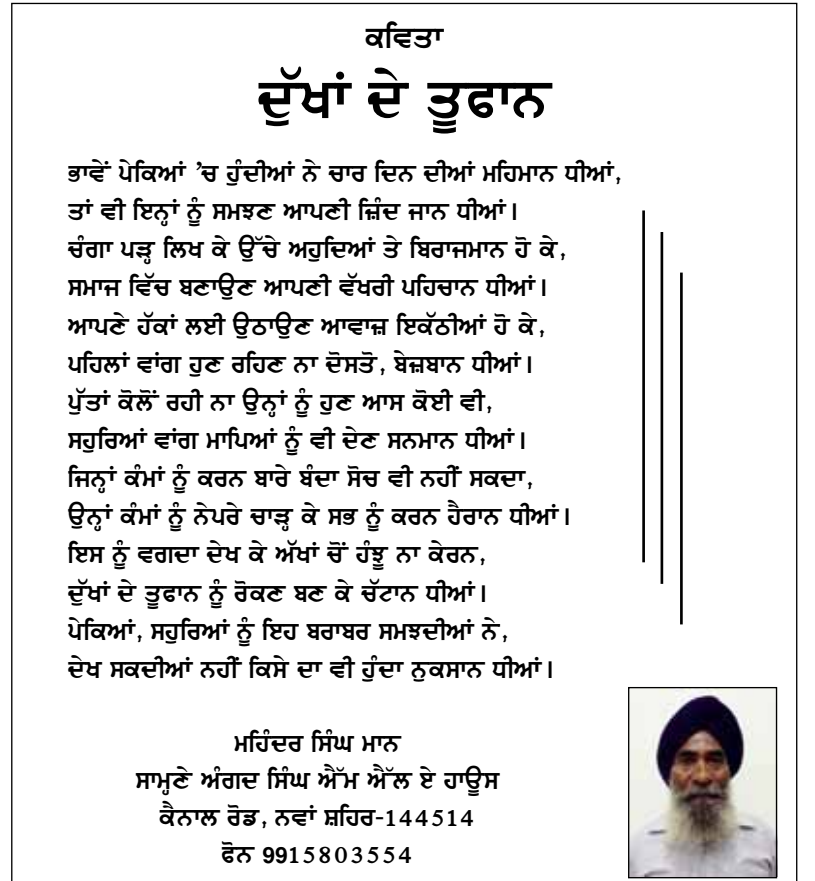 ਕਵਿਤਾ
ਦੁੱਖਾਂ ਦੇ ਤੂਫਾਨ
ਭਾਵੇਂ ਪੇਕਿਆਂ 'ਚ ਹੁੰਦੀਆਂ ਨੇ ਚਾਰ ਦਿਨ ਦੀਆਂ ਮਹਿਮਾਨ ਧੀਆਂ,
ਤਾਂ ਵੀ ਇਨ੍ਹਾਂ ਨੂੰ ਸਮਝਣ ਆਪਣੀ ਜ਼ਿੰਦ ਜਾਨ ਧੀਆਂ।
ਚੰਗਾ ਪੜ੍ਹ ਲਿਖ ਕੇ ਉੱਚੇ ਅਹੁਦਿਆਂ ਤੇ ਬਿਰਾਜਮਾਨ ਹੋ ਕੇ,
ਸਮਾਜ ਵਿੱਚ ਬਣਾਉਣ ਆਪਣੀ ਵੱਖਰੀ ਪਹਿਚਾਨ ਧੀਆਂ।
ਆਪਣੇ ਹੱਕਾਂ ਲਈ ਉਠਾਉਣ ਆਵਾਜ਼ ਇਕੱਠੀਆਂ ਹੋ ਕੇ,
ਪਹਿਲਾਂ ਵਾਂਗ ਹੁਣ ਰਹਿਣ ਨਾ ਦੋਸਤੋ, ਬੇਜ਼ਬਾਨ ਧੀਆਂ।
ਪੁੱਤਾਂ ਕੋਲੋਂ ਰਹੀ ਨਾ ਉਨ੍ਹਾਂ ਨੂੰ ਹੁਣ ਆਸ ਕੋਈ ਵੀ,
ਸਹੁਰਿਆਂ ਵਾਂਗ ਮਾਪਿਆਂ ਨੂੰ ਵੀ ਦੇਣ ਸਨਮਾਨ ਧੀਆਂ।
ਜਿਨ੍ਹਾਂ ਕੰਮਾਂ ਨੂੰ ਕਰਨ ਬਾਰੇ ਬੰਦਾ ਸੋਚ ਵੀ ਨਹੀਂ ਸਕਦਾ,
ਉਨ੍ਹਾਂ ਕੰਮਾਂ ਨੂੰ ਨੇਪਰੇ ਚਾੜ੍ਹ ਕੇ ਸਭ ਨੂੰ ਕਰਨ ਹੈਰਾਨ ਧੀਆਂ।
ਇਸ ਨੂੰ ਵਗਦਾ ਦੇਖ ਕੇ ਅੱਖਾਂ ਚੋਂ ਹੰਝੂ ਨਾ ਕੇਰਨ,
ਦੁੱਖਾਂ ਦੇ ਤੂਫਾਨ ਨੂੰ ਰੋਕਣ ਬਣ ਕੇ ਚੱਟਾਨ ਧੀਆਂ।
ਪੇਕਿਆਂ, ਸਹੁਰਿਆਂ ਨੂੰ ਇਹ ਬਰਾਬਰ ਸਮਝਦੀਆਂ ਨੇ,
ਦੇਖ ਸਕਦੀਆਂ ਨਹੀਂ ਕਿਸੇ ਦਾ ਵੀ ਹੁੰਦਾ ਨੁਕਸਾਨ ਧੀਆਂ।
ਮਹਿੰਦਰ ਸਿੰਘ ਮਾਨ
ਸਾਮ੍ਹਣੇ ਅੰਗਦ ਸਿੰਘ ਐੱਮ ਐੱਲ ਏ ਹਾਊਸ
ਕੈਨਾਲ ਰੋਡ, ਨਵਾਂ ਸ਼ਹਿਰ-144514
ਫੋਨ 9915803554